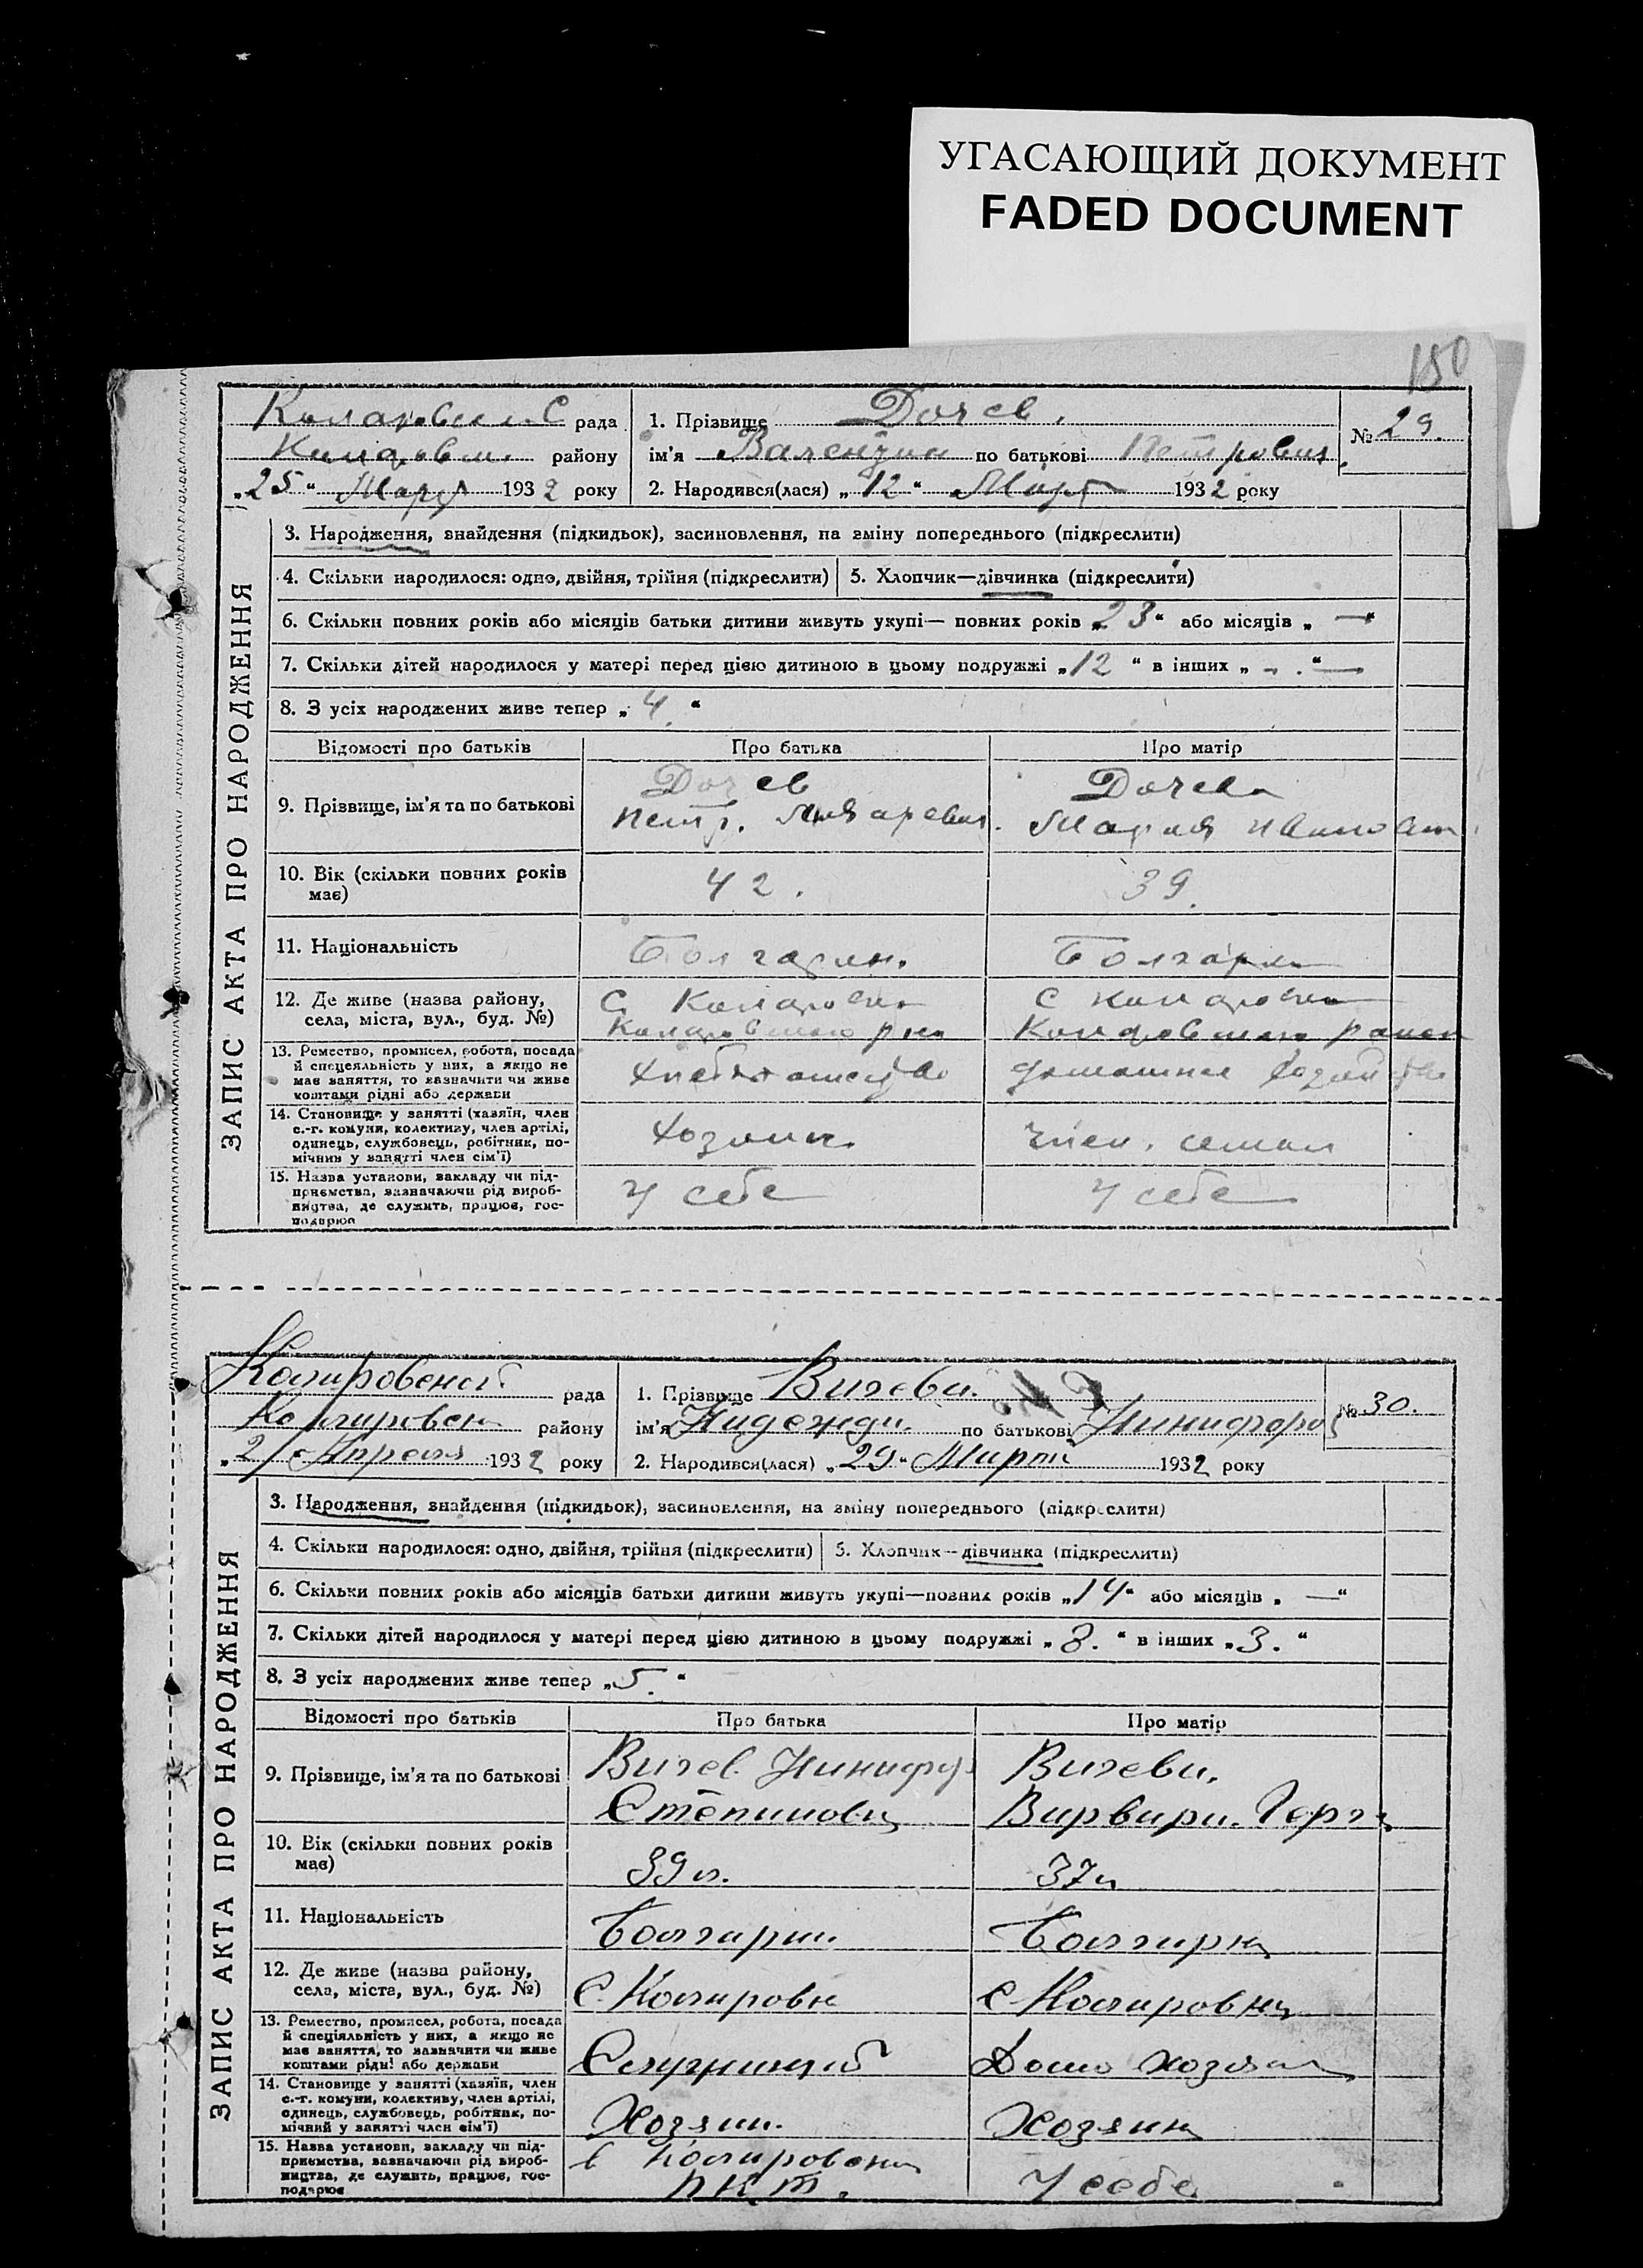 УГАСАЮЩИЙ ДОКУМЕНТ
FADED DOCUMENT
150
рада
району
„25“ Марта 1932 року
1. Прізвище Дочев.
ім'я Валентин по батькові Петрович.
2. Народився(лася) „12“ Март 1932 року
№ 29.
ЗАПИС АКТА ПРО НАРОДЖЕННЯ
3. Народження, знайдення (підкидьок), засиновлення, на зміну попереднього (підкреслити)
4. Скільки народилося: одно, двійня, трійня (підкреслити)
5. Хлопчик—дівчинка (підкреслити)
6. Скільки повних років або місяців батьки дитини живуть укупі— повних років „23“ або місяців „—“
7. Скільки дітей народилося у матері перед цією дитиною в цьому подружжі „12“ в інших „-.“—
8. З усіх народжених живе тепер „4.“
Відомості про батьків
Про батька
Про матір
9. Прізвище, ім'я та по батькові
Дочев
Петр.
Дочева
Мария Ивановна
10. Вік (скільки повних років
має)
42.
39.
11. Національність
Болгарин.
Болгарка
12. Де живе (назва району,
села, міста, вул., буд. №)
С.
С
13. Ремество, промисел, робота, посада
й спецеяльність у них, а якщо не
має заняття, то зазначити чи живе
коштами рідні або держави
Хлебопашество
домашнее хозяйство
14. Становище у занятті (хазяїн, член
с.-г. комуни, колективу, член артілі,
одинець, службовець, робітник, по-
мічник у занятті член сім'ї)
Хозяин.
член. семьи
15. Назва установи, закладу чи під-
приємства, зазначаючи рід вироб-
ництва, де служить, працює, гос-
подарює
у себе
у себе
рада
району
„2/ Апреля 1932 року
1. Прізвище Вичева.
ім'я Надежда. по батькові Никифоров
2. Народився(лася) „29“ Марта 1932 року
№ 30.
ЗАПИС АКТА ПРО НАРОДЖЕННЯ
3. Народження, знайдення (підкидьок), засиновлення, на зміну попереднього (підкреслити)
4. Скільки народилося: одно, двійня, трійня (підкреслити)
5. Хлопчик—дівчинка (підкреслити)
6. Скільки повних років або місяців батьки дитини живуть укупі—повних років „14“ або місяців „—“
7. Скільки дітей народилося у матері перед цією дитиною в цьому подружжі „8.“ в інших „3.“
8. З усіх народжених живе тепер „5.“
Відомості про батьків
Про батька
Про матір
9. Прізвище, ім'я та по батькові
Вичев Никифор
Степанович
Вичева.
Варвара. Георг
10. Вік (скільки повних років
має)
39 л.
37 л
11. Національність
Болгарин.
Болгарка
12. Де живе (назва району,
села, міста, вул., буд. №)
С
С
13. Ремество, промисел, робота, посада
й спеціяльність у них, а якщо не
має заняття, то зазначити чи живе
коштами рідні або держави
Служащий
Домо хозяй
14. Становище у занятті (хазяїн, член
с.-г. комуни, колективу, член артілі,
одинець, службовець, робітник, по-
мічний у занятті член сім'ї)
Хозяин.
Хозяйка
15. Назва установи, закладу чи під-
приємства, зазначаючи рід вироб-
ництва, де служить, працює, гос-
подарює
в
у себе